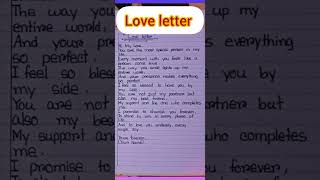 Love letter
Love letter
Hi My Love,
You are the most special person in my
life.
Every moment with you feels like a
dream come true.
The way you smile lights up my
entire world.
And your presence makes everything
so perfect.
I feel so blessed to have you by
my side.
You are not just my partner but
also my best friend.
My support and the one who completes
me.
I promise to cherish you forever,
To stand by you in every phase of
life
And to love you endlessly, every
single day
Yours forever,
[Your Name]
The way you
up my
entire world.
And your
everything
so perfect.
I feel so
you by
my side.
You are not
but
also my
My support
completes
me.
I promise to
forever,